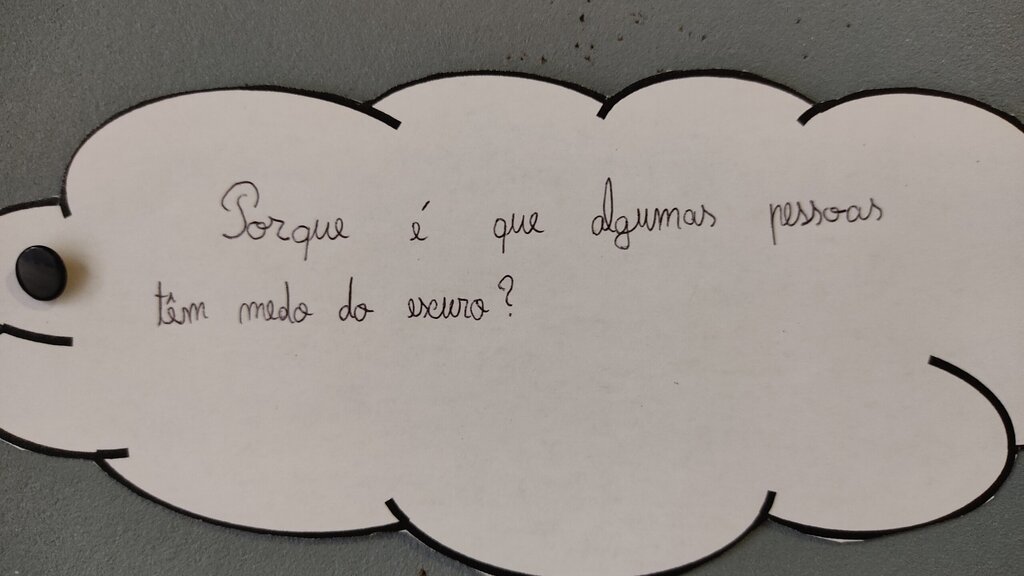 Porque é que algumas pessoas
têm medo do escuro?